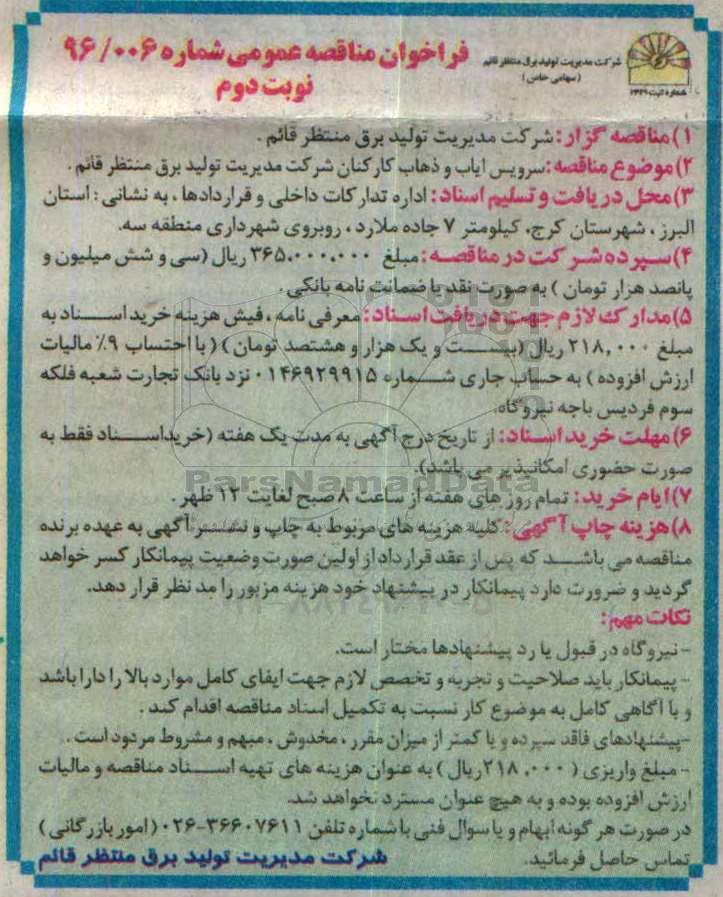 شرکت مدیریت تولید برق منتظر قائم
(سهامی خاص)
شماره ثبت ۱۳۲۹
فراخوان مناقصه عمومی شماره ۹۶/۰۰۶
نوبت دوم
۱)مناقصه گزار: شرکت مدیریت تولید برق منتظر قائم .
۲)موضوع مناقصه: سرویس ایاب و ذهاب کارکنان شرکت مدیریت تولید برق منتظر قائم .
۳)محل دریافت و تسلیم اسناد: اداره تدارکات داخلی و قراردادها ، به نشانی : استان
البرز ، شهرستان کرج، کیلومتر ۷ جاده ملارد ، روبروی شهرداری منطقه سه.
۴)سپرده شرکت در مناقصه: مبلغ ۳۶۵،۰۰۰،۰۰۰ ریال (سی و شش میلیون و
پانصد هزار تومان ) به صورت نقد یا ضمانت نامه بانکی .
۵)مدارک لازم جهت دریافت اسناد: معرفی نامه ، فیش هزینه خرید اسناد به
مبلغ ۲۱۸,۰۰۰ ریال (بیست و یک هزار و هشتصد تومان) ( با احتساب ۹٪ مالیات
ارزش افزوده ) به حساب جاری شماره ۰۱۴۶۹۲۹۹۱۵ نزد بانک تجارت شعبه فلکه
سوم فردیس باجه نیروگاه.
۶)مهلت خرید اسناد: از تاریخ درج آگهی به مدت یک هفته (خریداسناد فقط به
صورت حضوری امکانپذیر می باشد).
۷)ایام خرید: تمام روز های هفته از ساعت ۸ صبح لغایت ۱۲ ظهر .
۸)هزینه چاپ آگهی: کلیه هزینه های مربوط به چاپ و نشر آگهی به عهده برنده
مناقصه می باشد که پس از عقد قرارداد از اولین صورت وضعیت پیمانکار کسر خواهد
گردید و ضرورت دارد پیمانکار در پیشنهاد خود هزینه مزبور را مد نظر قرار دهد.
نکات مهم:
- نیروگاه در قبول یا رد پیشنهادها مختار است.
- پیمانکار باید صلاحیت و تجربه و تخصص لازم جهت ایفای کامل موارد بالا را دارا باشد
و با آگاهی کامل به موضوع کار نسبت به تکمیل اسناد مناقصه اقدام کند .
-پیشنهادهای فاقد سپرده و یا کمتر از میزان مقرر ، مخدوش ، مبهم و مشروط مردود است .
- مبلغ واریزی ( ۲۱۸،۰۰۰ریال ) به عنوان هزینه های تهیه اسناد مناقصه و مالیات
ارزش افزوده بوده و به هیچ عنوان مسترد نخواهد شد.
در صورت هر گونه ابهام و یا سوال فنی با شماره تلفن ۳۶۶۰۷۶۱۱-۰۲۶ (امور بازرگانی )
تماس حاصل فرمائید.
شرکت مدیریت تولید برق منتظر قائم
ParsNamadData